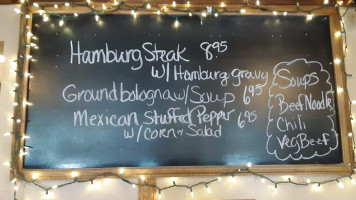 Hamburg Steak 8.95
w/ Hamburg gravy
Ground bologna w/ Soup 6.95
Mexican Stuffed Pepper 6.95
w/ corn & Salad
Soups
Beef Noodle
Chili
Veg Beef